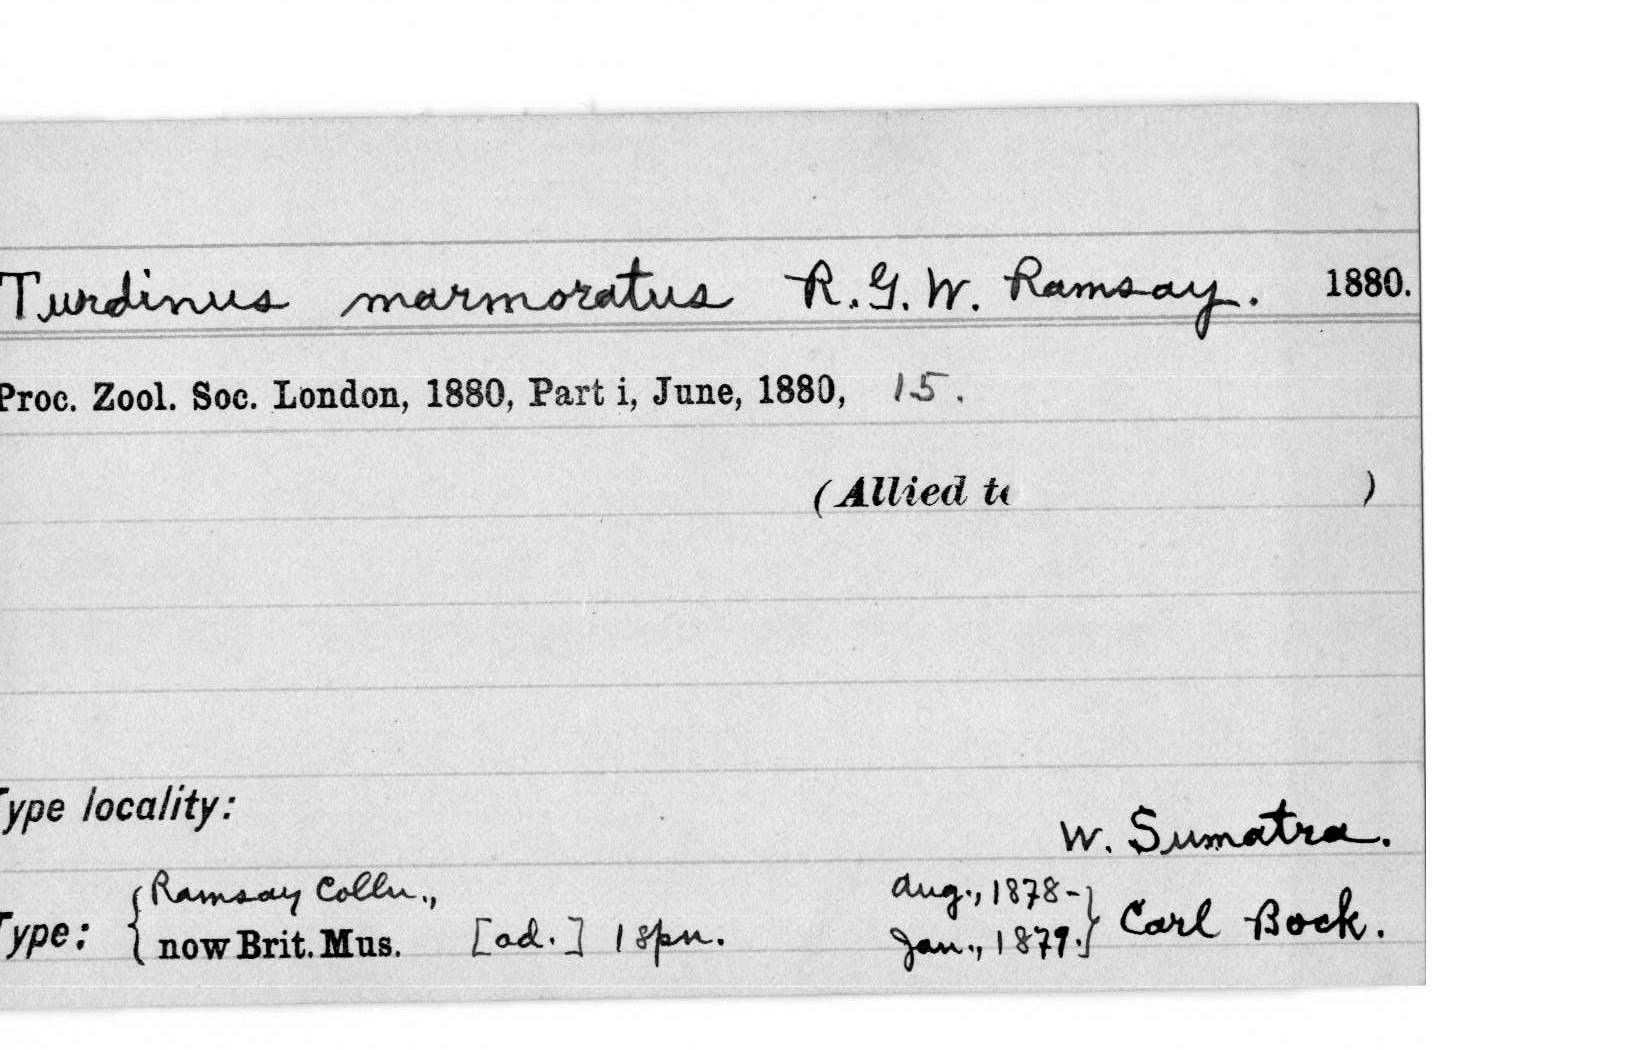 Turdinus marmoratus R. G. W. Ramsay. 1880.
Proc. Zool. Soc. London, 1880, Part i, June, 1880, 15.
(Allied to )
Type locality:
W. Sumatra.
Ramsay Colln., Aug., 1878-
Type: now Brit. Mus. [ad.] 1 spn. Jan., 1879. Carl Bock.